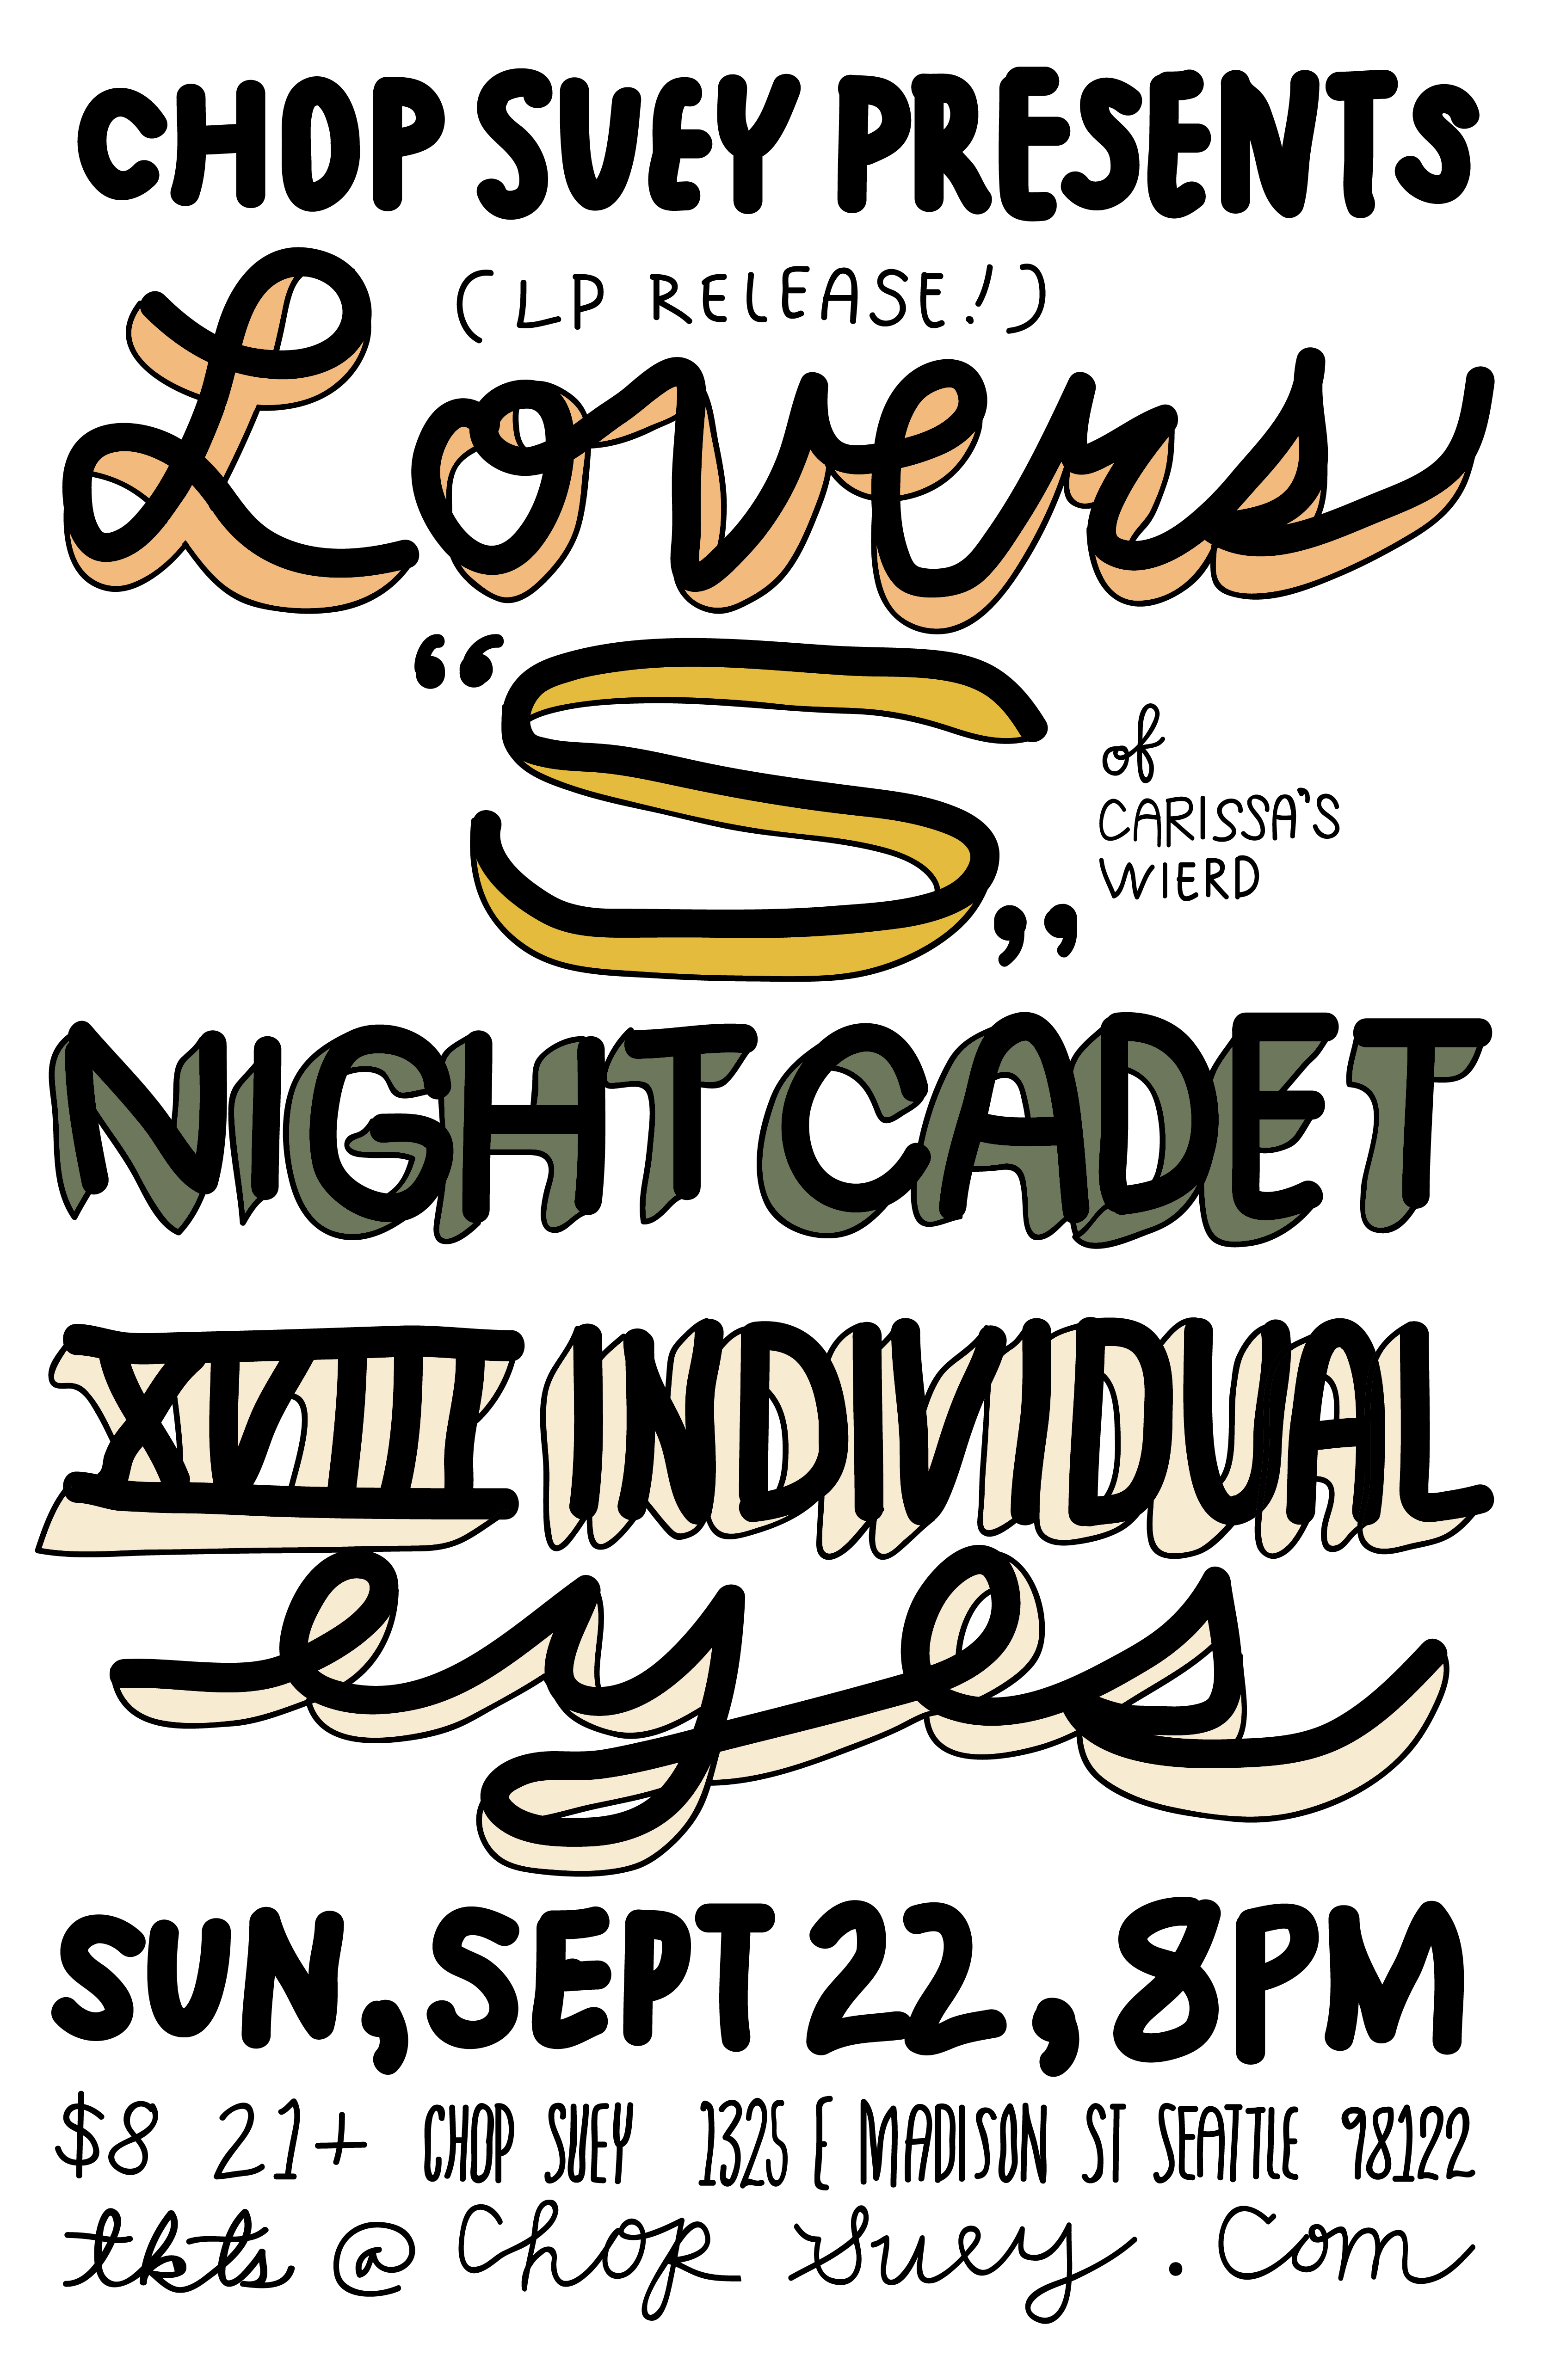 CHOP SUEY PRESENTS
(LP RELEASE!)
Lovers
“S”
of
CARISSA'S
WIERD
NIGHT CADET
XVIII INDIVIDUAL
eyes
SUN, SEPT 22, 8PM
$8 21+ CHOP SUEY 1325 E MADISON ST SEATTLE 98122
tkts @ Chop Suey . Com